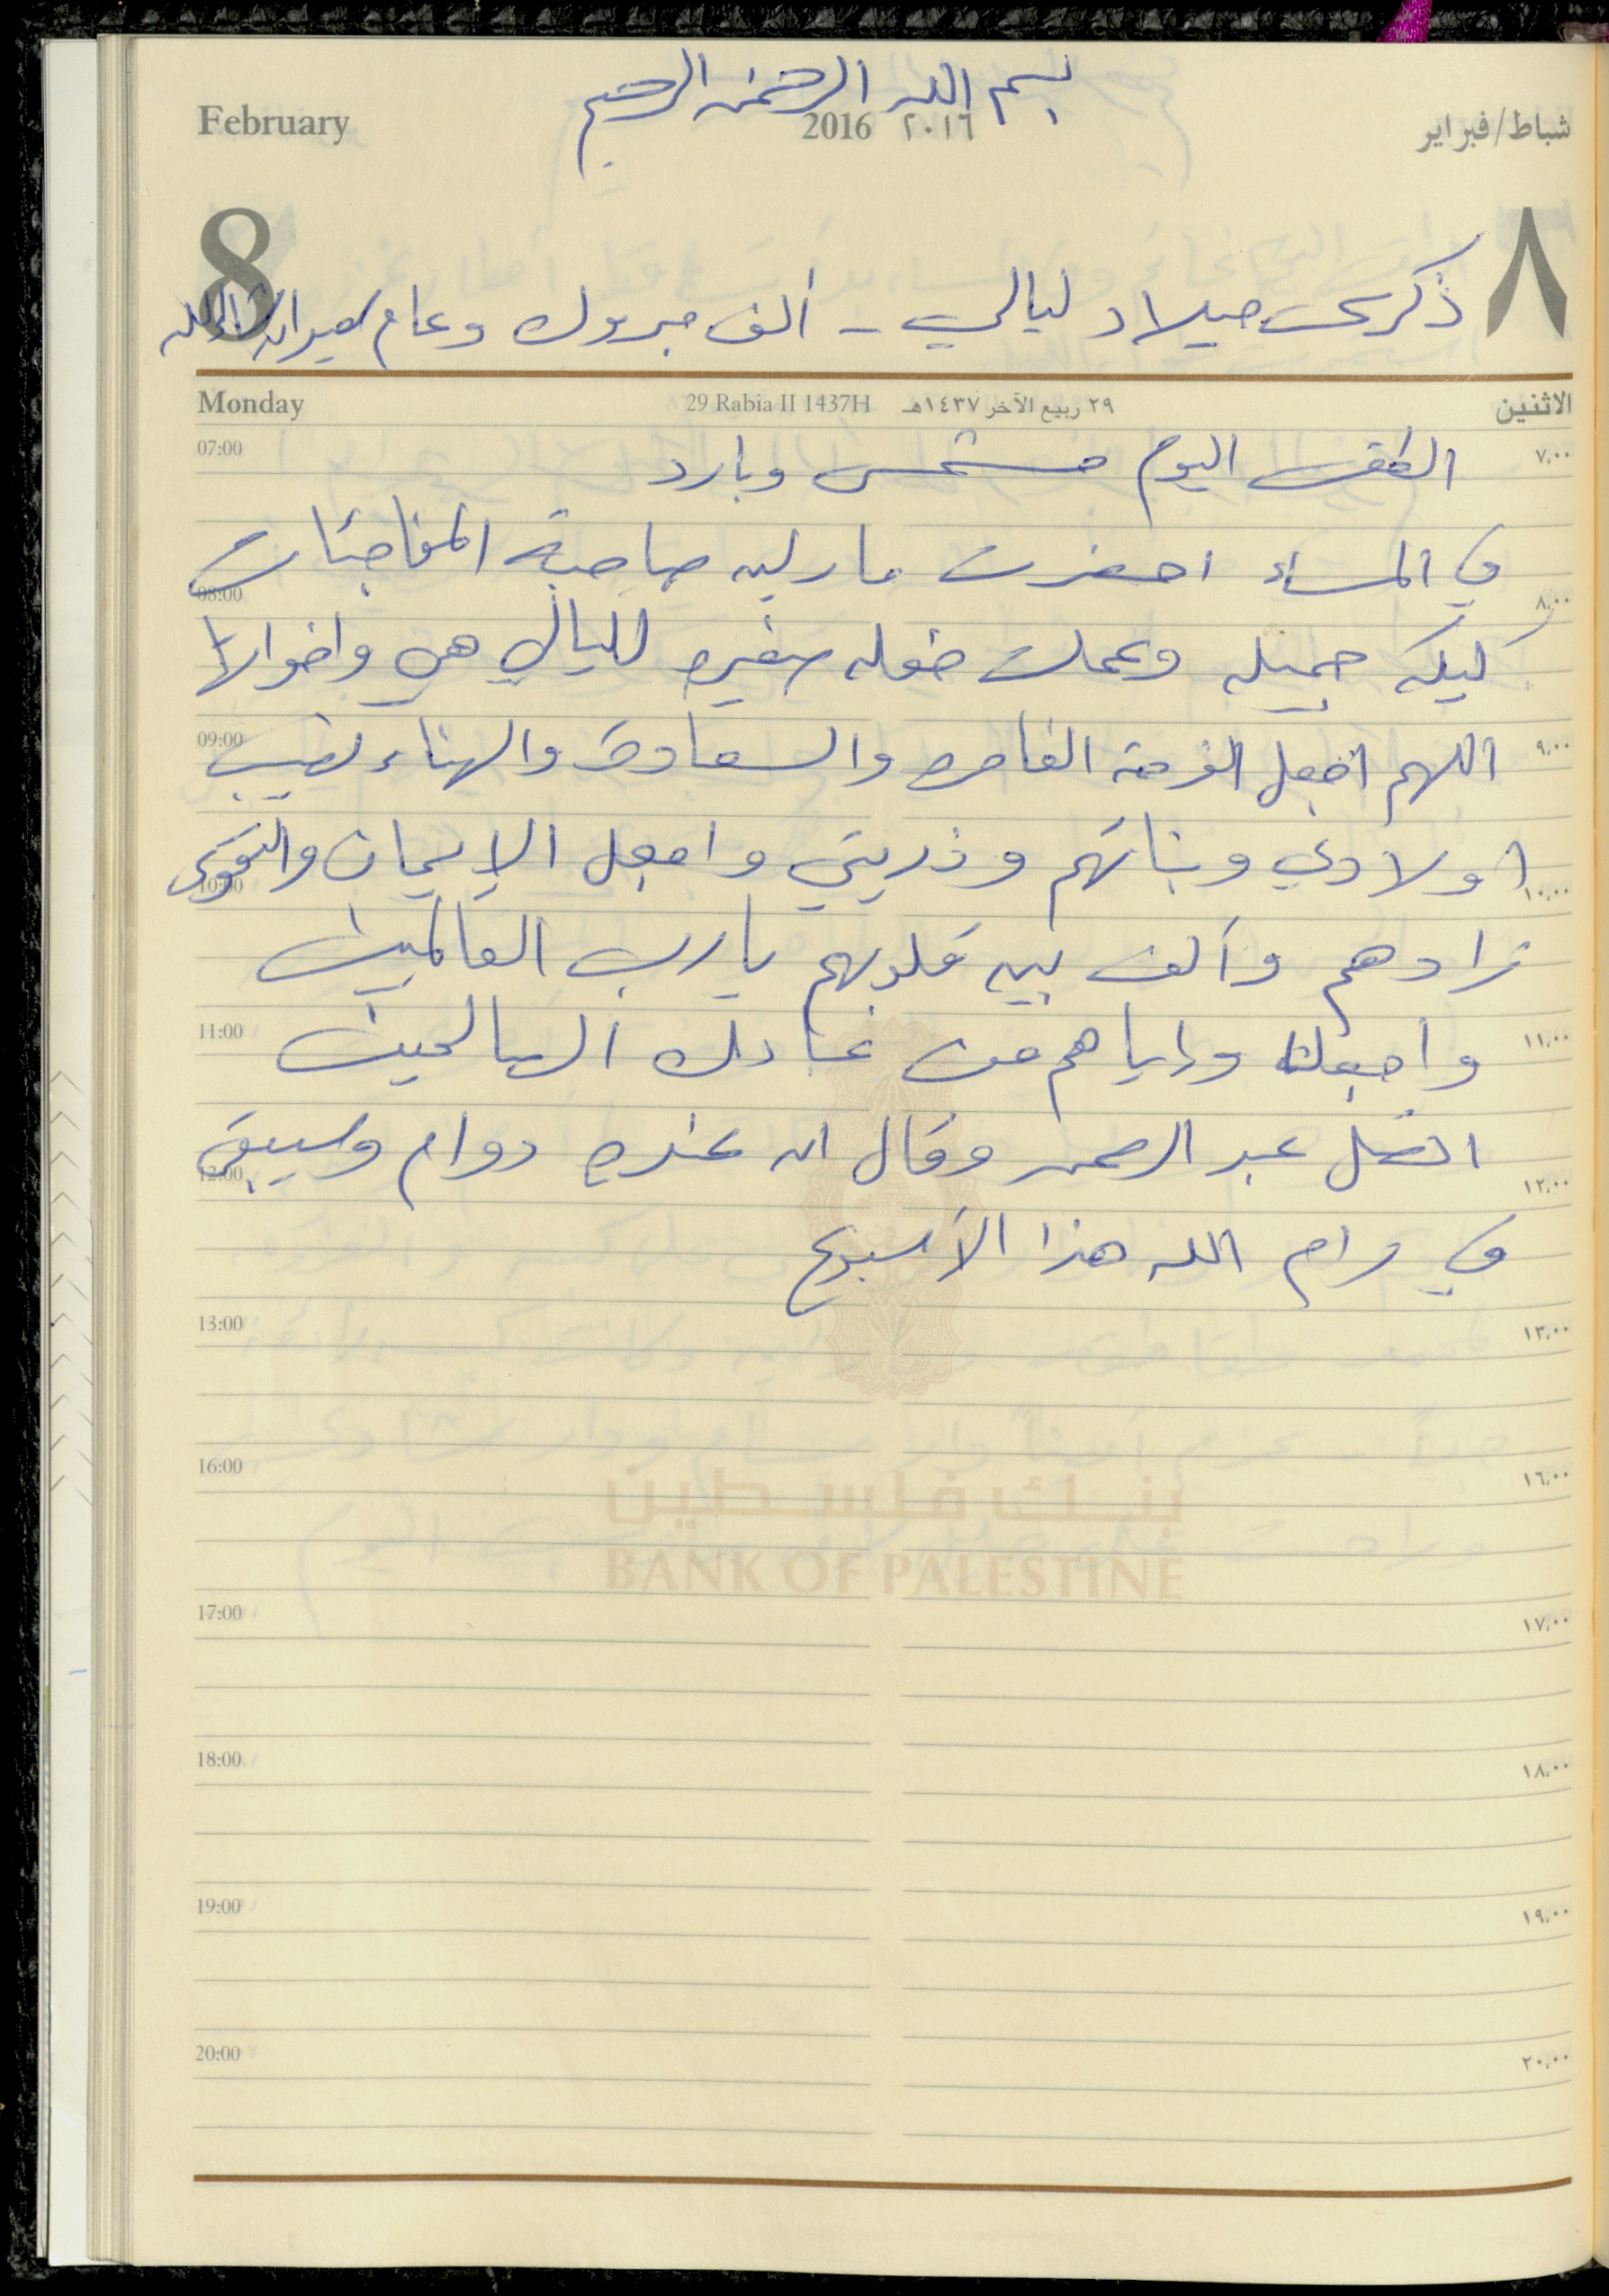 بسم الله الرحمن الرحيم
February 2016 ٢٠١٦ شباط/فبراير
8 ٨
ذكرى ميلاد ليالي - ألف مبروك وعام سعيد ان شاء الله
Monday 29 Rabia II 1437H ٢٩ ربيع الآخر ١٤٣٧هـ الاثنين
07:00 ٧,٠٠
الطقس اليوم مشمس وبارد
في المساء احضرت مارلين صاحبة المفاجئات
08:00 ٨,٠٠
كيكه جميله وعملت حفله صغيره لليالي هي واخواتها
09:00 ٩,٠٠
اللهم اجعل الفرحة الغامره والسعادة والهناء نصيب
اولادي وبناتهم وذريتي واجعل الإيمان والتقوى
10:00 ١٠,٠٠
زادهم وألف بين قلوبهم يا رب العالمين
11:00 ١١,٠٠
واجعلنا واياهم من عبادك الصالحين
اتصل عبد الرحمن وقال ان عنده دوام وسيبقى
12:00 ١٢,٠٠
في رام الله هذا الأسبوع
13:00 ١٣,٠٠
16:00 ١٦,٠٠
بنك فلسطين
BANK OF PALESTINE
17:00 ١٧,٠٠
18:00 ١٨,٠٠
19:00 ١٩,٠٠
20:00 ٢٠,٠٠